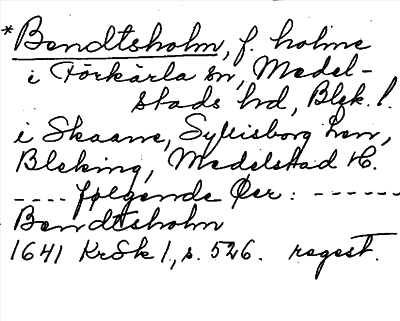 *Bendtsholm, f. holme
i Förkärla sn, Medel-
stads hd, Blek. l.
i Skaane, Sylisborg Len,
Bleking, Medelstad H.
---- følgende Øer: ------
Bendtsholm
1641 KrSk 1, s. 526. regest.